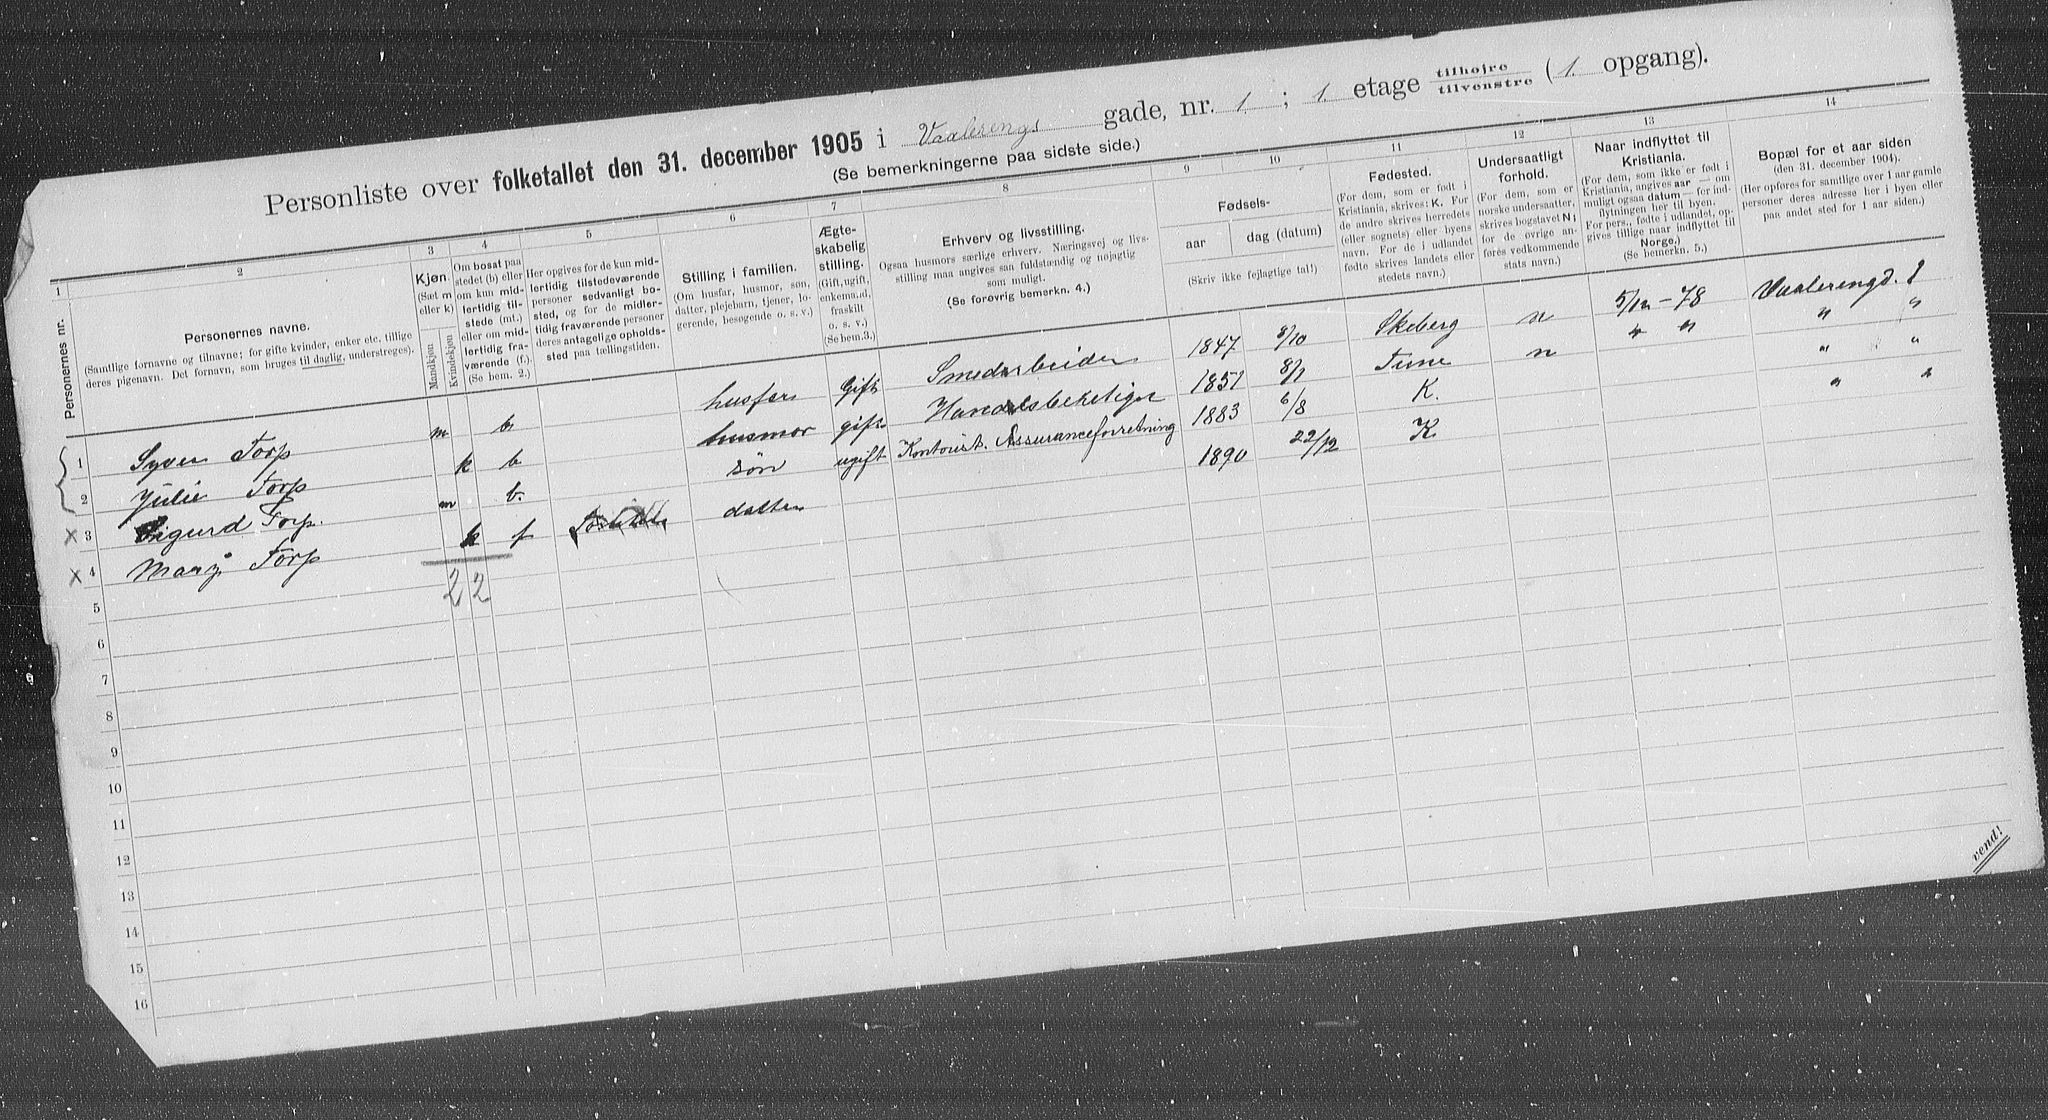 Personliste over folketallet den 31. december 1905 i Vaalerengs gade, nr. 1 ; 1. etage tilhøjre tilvenstre (1. opgang).
(Se bemerkningerne paa sidste side.)
1 2 3 4 5 6 7 8 9 10 11 12 13 14
Personernes nr.
Personernes navne.
(Samtlige fornavne og tilnavne; for gifte kvinder, enker etc. tillige
deres pigenavn. Det fornavn, som bruges til daglig, understreges).
Kjøn.
(Sæt m
eller k)
Mandkjøn
Kvindekjøn
Om bosat paa
stedet (b) eller
om kun mid-
lertidig til-
stede (mt.)
eller om mid-
lertidig fra-
værende (f.)
(Se bem. 2.)
Her opgives for de kun mid-
lertidig tilstedeværende
personer sedvanligt bo-
sted, og for de midler-
tidig fraværende personer
deres antagelige opholds-
sted paa tællingstiden.
Stilling i familien.
(Om husfar, husmor, søn,
datter, plejebarn, tjener, lo-
gerende, besøgende o. s. v.)
Ægte-
skabelig
stilling.
(Gift, ugift,
enkema.d,
fraskilt
o. s. v.)
(Se bem.3.)
Erhverv og livsstilling.
Ogsaa husmors særlige erhverv. Næringsvej og livs-
stilling maa angives saa fuldstændig og nøjagtig
som muligt.
(Se forøvrig bemerkn. 4.)
Fødsels-
aar dag (datum)
(Skriv ikke fejlagtige tal!)
Fødested.
(For dem, som er født i
Kristiania, skrives: K. For
de andre skrives herredets
(eller sognets) eller byens
navn. For de i udlandet
fødte skrives landets eller
stedets navn.)
Undersaatligt
forhold.
(For dem, som er
norske undersaatter,
skrives bogstavet N;
for de øvrige an-
føres vedkommende
stats navn.)
Naar indflyttet til
Kristiania.
(For dem, som ikke er født i
Kristiania, angives aar — om
muligt ogsaa datum — for ind-
flytningen her til byen.
For pers., fødte i udlandet, op-
gives tillige naar indflyttet til
Norge.)
(Se bemerkn. 5.)
Bopæl for et aar siden
(den 31. december 1904).
(Her opføres for samtlige over 1 aar gamle
personer deres adresse her i byen eller
paa andet sted for 1 aar siden.)
1 Syver Torp m b. husfar Gift Smedarbeider 1847 8/10 Skeberg n 5/12 - 78 Vaalerengd. 1
2 Julie Torp k b husmor gift Handelsbeketiger 1851 8/1 Tune n " " " "
x 3 Sigurd Torp. m b. søn ugift Kontorist. Assuranceforretning 1883 6/8 K. " "
x 4 Mary Torp k f datter 1890 22/12 K " "
2 2
5
6
7
8
9
10
11
12
13
14
15
16
vend!